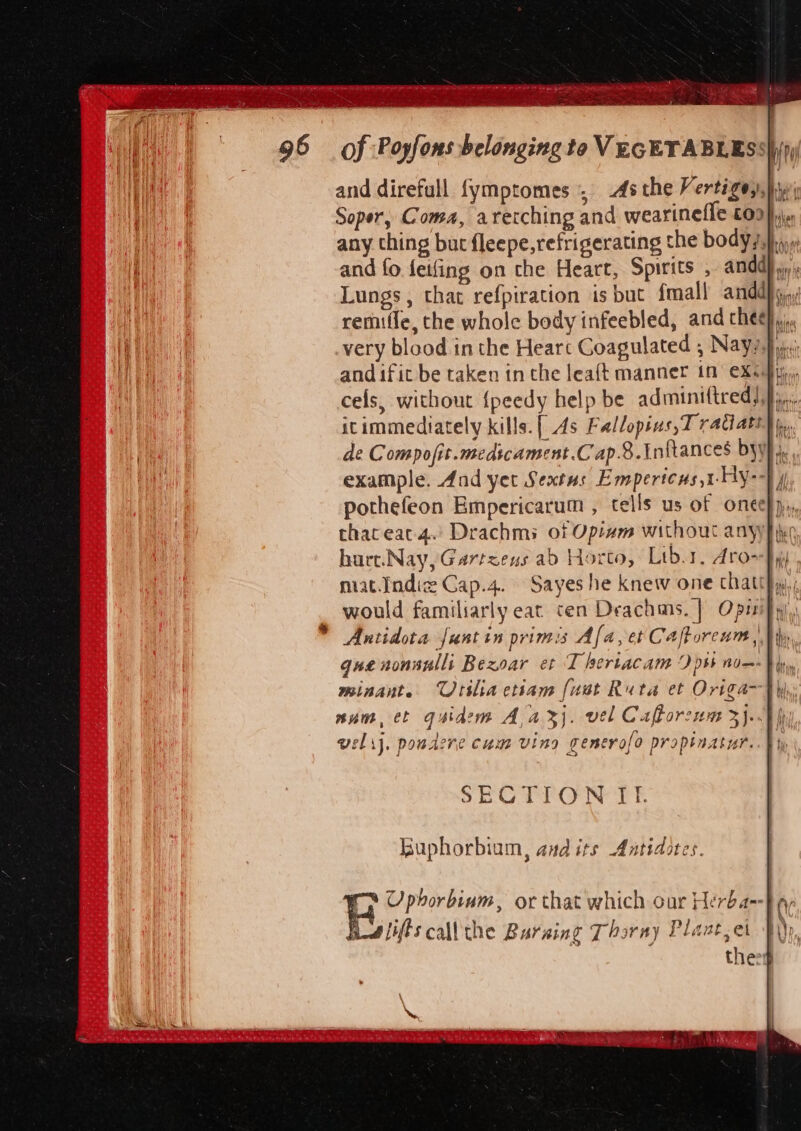 96 of Poyſons belonging to VEGETABLES
and direfull ſymptomes ; As the Vertigo,
Sopor, Coma, a retching and wearineſſe to
any thing but ſleepe, refrigerating the body,
and ſo ſeiſing on the Heart, Spirits , and
Lungs, that reſpiration is but ſmall and
remiſſe, the whole body infeebled, and the
very blood in the Heart Coagulated ; Nay,
and if it be taken in the leaſt manner in ex-
ceſs, without ſpeedy help be adminiſtred,
it immediately kills. [ As Fallopius, Tractat.
de Compoſit. medicament. Cap. 8. Inſtances by
example. And yet Sextus Empericus, 1. Hy-
potheſeon Empericarum , tells us of one
that eat 4. Drachms of Opium without any
hurt. Nay, Gartzeus ab Horto, Lib. 1. Aro-
mat. Indiæ Cap. 4. Sayes he knew one that
would familiarly eat ten Drachms. ] Opii
* Antidota ſunt in primis Aſa, et Caſtoreum,
que nonnulli Bezoar et Theriacam Opii no-
minant. Utilia etiam ſunt Ruta et Origa-
num, et quidem A,a ʒj. vel Caſtoreum ʒj.
vel ij. pondere cum vino generoſo propinatur.
SECTION II.
Euphorbium, and its Antidotes.
EUphorbium, or that which our Herba-
liſts call the Burning Thorny Plant, et
the